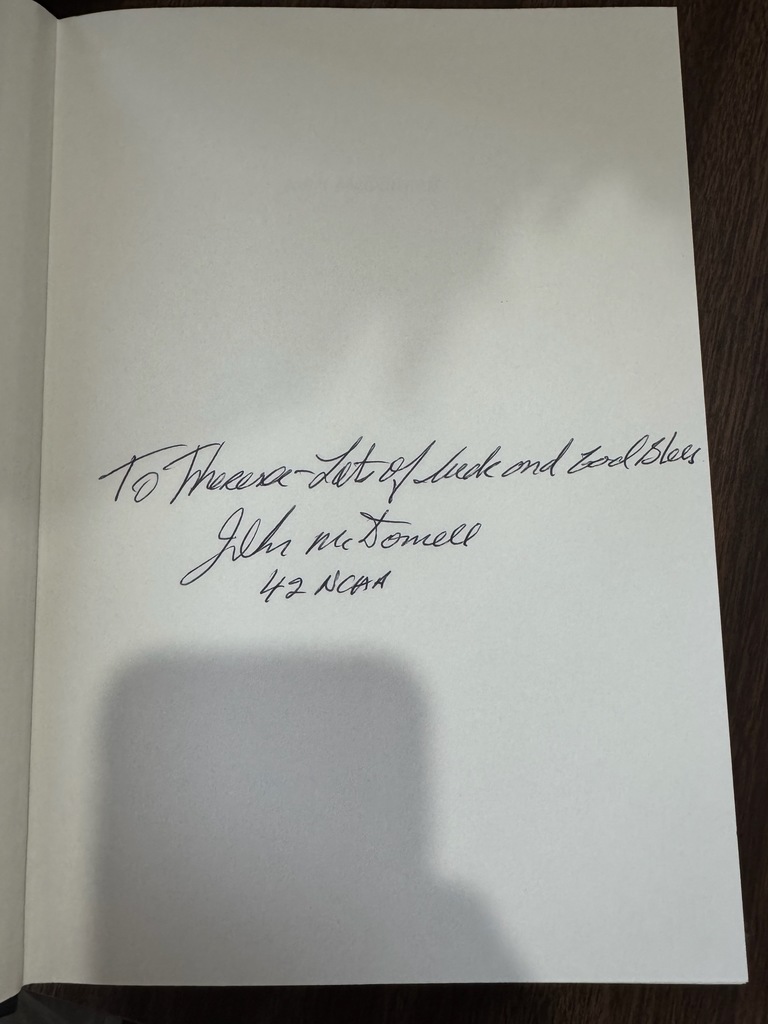 To Theresa - Lots of luck and God Bless
John McDonnell
42 NCAA